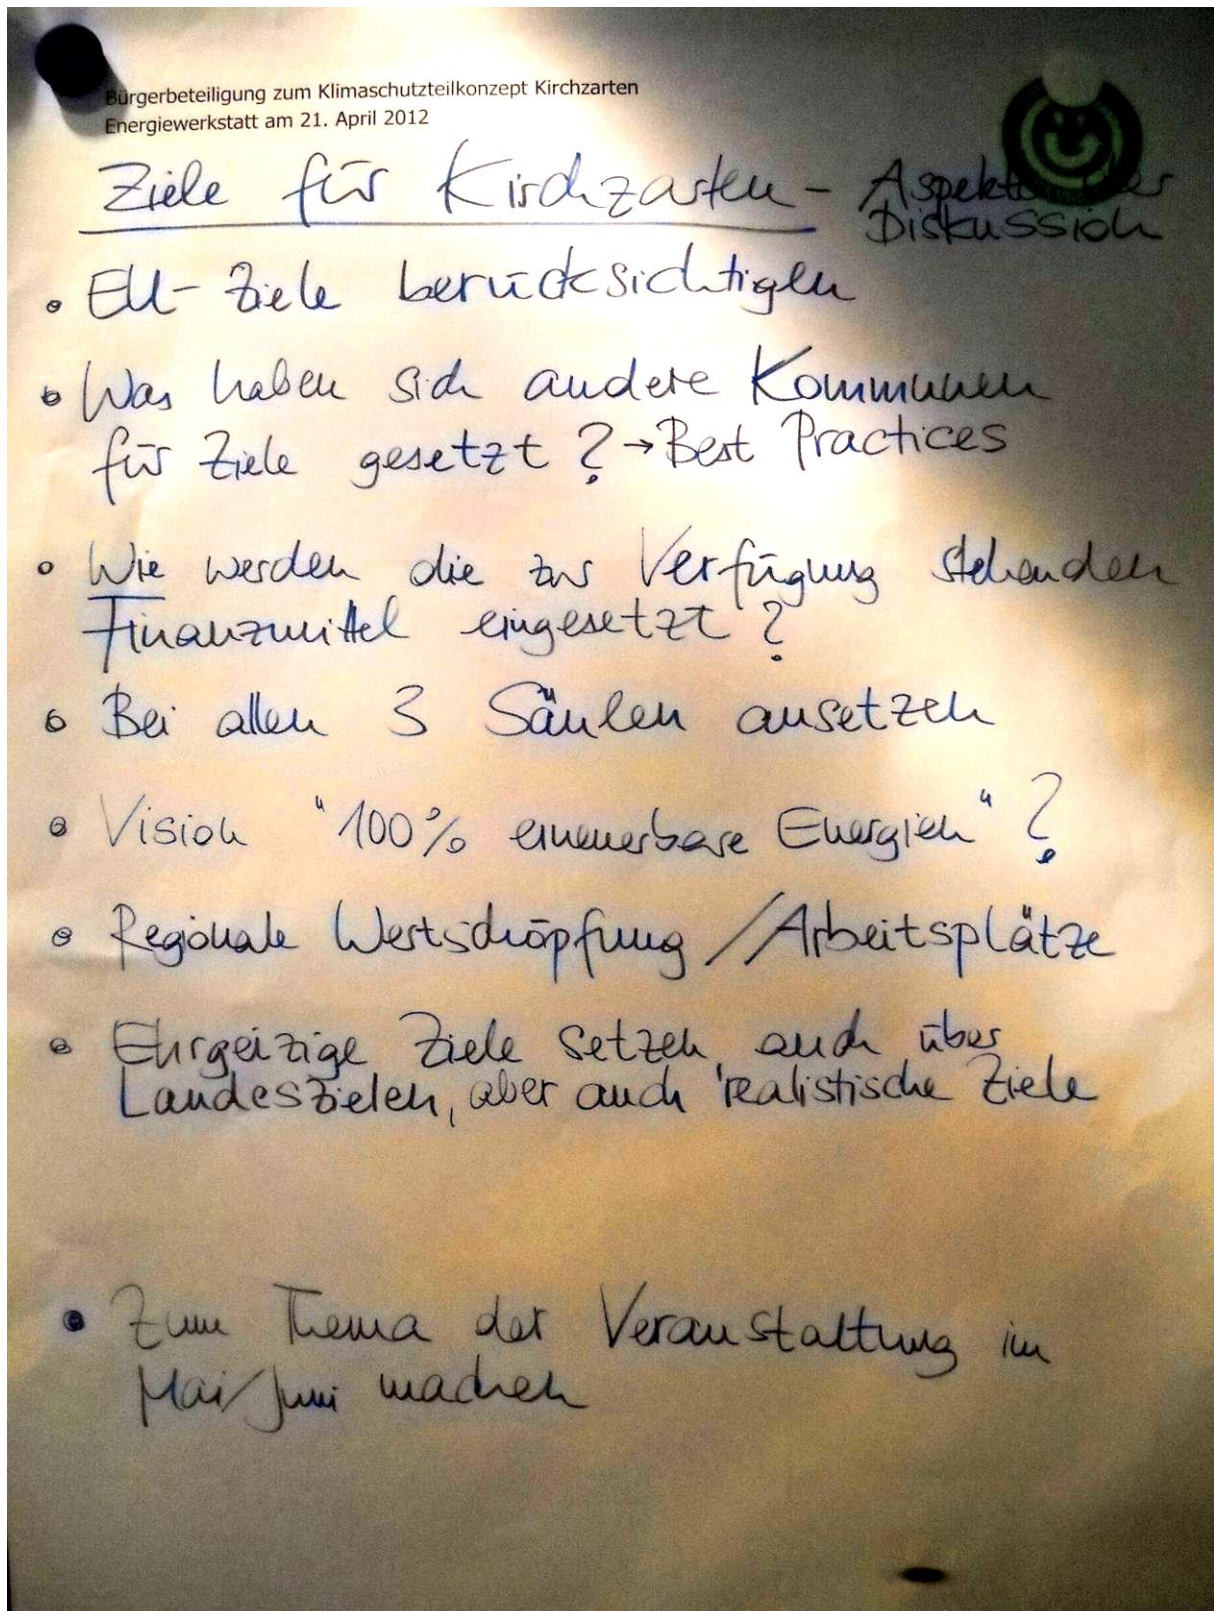 Bürgerbeteiligung zum Klimaschutzteilkonzept Kirchzarten
Energiewerkstatt am 21. April 2012
Ziele für Kirchzarten - Aspekte der
Diskussion
• EU-Ziele berücksichtigen
• Was haben sich andere Kommunen
für Ziele gesetzt? → Best Practices
• Wie werden die zur Verfügung stehenden
Finanzmittel eingesetzt?
• Bei allen 3 Säulen ansetzen
• Vision "100% erneuerbare Energien"?
• Regionale Wertschöpfung // Arbeitsplätze
• Ehrgeizige Ziele setzen, auch über
Landeszielen, aber auch realistische Ziele
• Zum Thema der Veranstaltung im
Mai/Juni machen